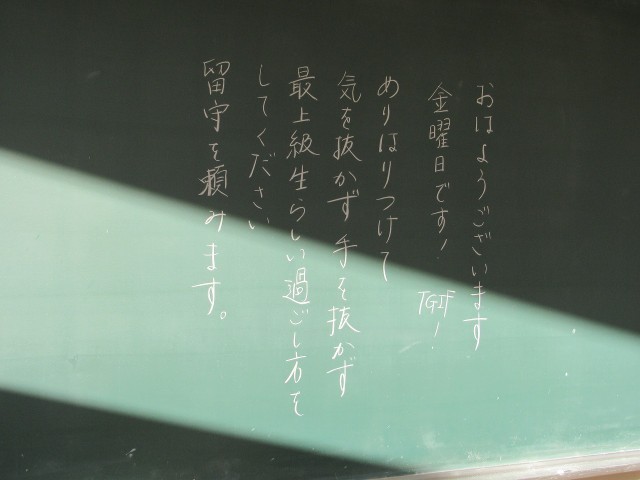 おはようございます
金曜日です! TGIF!
めりはりつけて
気を抜かず手を抜かず
最上級生らしい過ごし方を
してください
留守を頼みます。